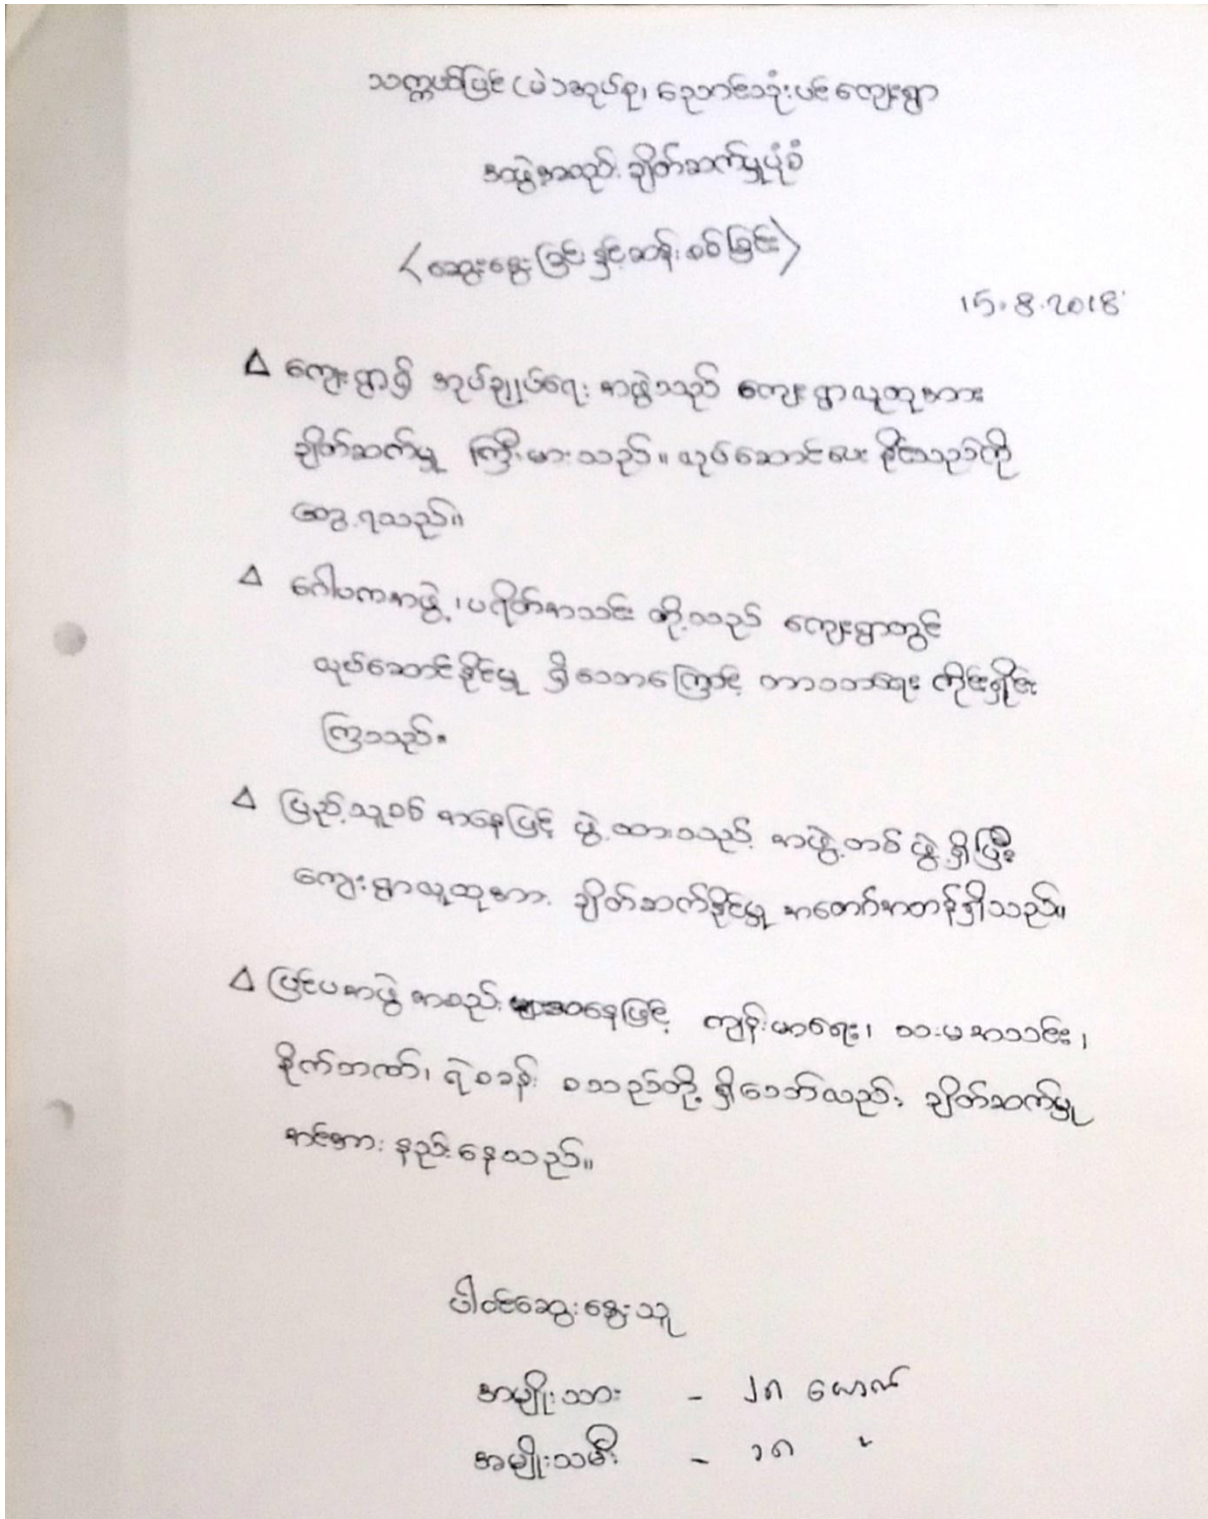 သက္ကယ်ပြင် (မဲ) အုပ်စု၊ ညောင်သုံးပင် ကျေးရွာ
အဖွဲ့အစည်း ချိတ်ဆက်မှုပုံစံ
〈ဆွေးနွေးခြင်းနှင့်ဆန်းစစ်ခြင်း〉
15.8.2018
Δ ကျေးရွာ၏ အုပ်ချုပ်ရေး အဖွဲ့သည် ကျေးရွာလူထုအား
ချိတ်ဆက်မှု ကြီးမားသည်။ လုပ်ဆောင်ပေးနိုင်သည်ကို
တွေ့ရသည်။
Δ ဂေါပကအဖွဲ့၊ ပရိတ်အသင်း တို့သည် ကျေးရွာတွင်
လုပ်ဆောင်နိုင်မှု ရှိသောကြောင့် ဘာသာရေး ကိုင်းရှိုင်း
ကြသည်။
Δ ပြည်သူ့စစ် အနေဖြင့် ဖွဲ့ထားသည့် အဖွဲ့တစ်ဖွဲ့ရှိပြီး
ကျေးရွာလူထုအား ချိတ်ဆက်နိုင်မှု အတော်အတန်ရှိသည်။
Δ ပြင်ပအဖွဲ့အစည်းများအနေဖြင့် ကျန်းမာရေး၊ သားမအသင်း၊
စိုက်ဘဏ်၊ ရဲစခန်း စသည်တို့ ရှိသော်လည်း ချိတ်ဆက်မှု
အင်အား နည်းနေသည်။
ပါဝင်ဆွေးနွေးသူ
အမျိုးသား - ၂၈ ယောက်
အမျိုးသမီး - ၁၈ "